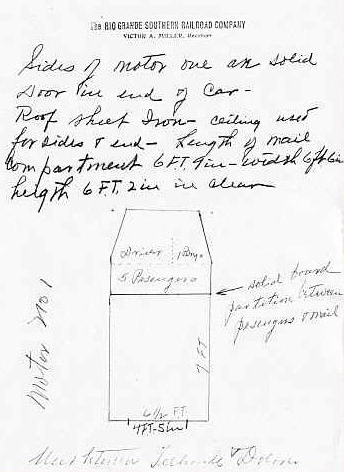 The RIO GRANDE SOUTHERN RAILROAD COMPANY
VICTOR A. MILLER, Receiver
Sides of motor one are solid
Door in end of Car -
Roof sheet Iron - ceiling used
for sides & end - Length of mail
Compartment 6 FT. 9 in - width 6 ft 6 in
heigth 6 FT. 2 in in clear
Driver 1 Psngr
5 Pasengers
solid board
partition between
pasengers & mail
Motor No 1
7 FT
6 1/2 FT.
4 FT-5 in
Telluride & Dolores